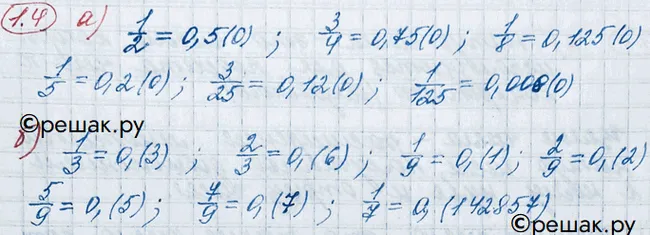 1.4 а) 1/2 = 0,5(0) ; 3/4 = 0,75(0) ; 1/8 = 0,125(0)
1/5 = 0,2(0) ; 3/25 = 0,12(0) ; 1/125 = 0,008(0)
©решак.ру
б) 1/3 = 0,(3) ; 2/3 = 0,(6) ; 1/9 = 0,(1) ; 2/9 = 0,(2)
5/9 = 0,(5) ; 7/9 = 0,(7) ; 1/7 = 0,(142857)
©решак.ру